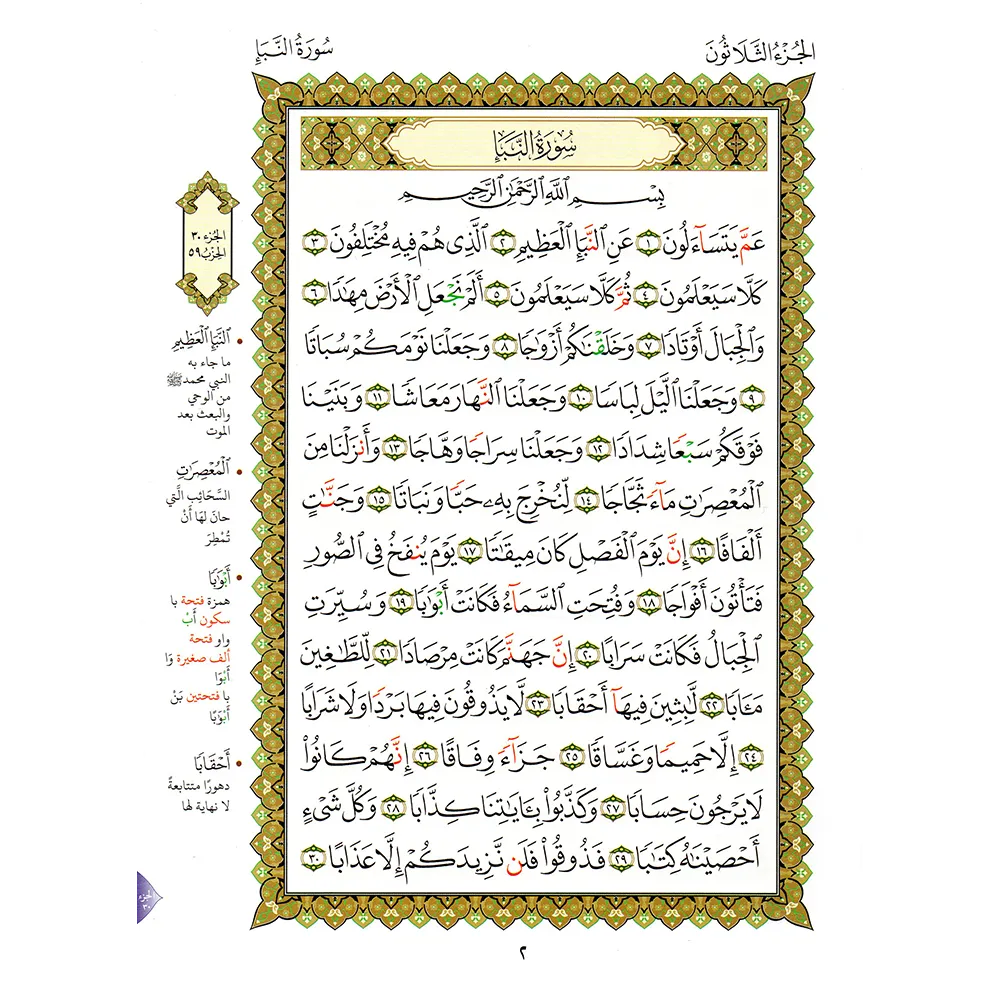 الجُزْءُ الثَّلَاثُونَ
سُورَةُ النَّبَإِ
سُورَةُ النَّبَإِ
بِسْمِ ٱللَّهِ ٱلرَّحْمَٰنِ ٱلرَّحِيمِ
عَمَّ يَتَسَآءَلُونَ ١ عَنِ ٱلنَّبَإِ ٱلْعَظِيمِ ٢ ٱلَّذِى هُمْ فِيهِ مُخْتَلِفُونَ ٣
كَلَّا سَيَعْلَمُونَ ٤ ثُمَّ كَلَّا سَيَعْلَمُونَ ٥ أَلَمْ نَجْعَلِ ٱلْأَرْضَ مِهَٰدًا ٦
وَٱلْجِبَالَ أَوْتَادًا ٧ وَخَلَقْنَٰكُمْ أَزْوَٰجًا ٨ وَجَعَلْنَا نَوْمَكُمْ سُبَاتًا
٩ وَجَعَلْنَا ٱلَّيْلَ لِبَاسًا ١٠ وَجَعَلْنَا ٱلنَّهَارَ مَعَاشًا ١١ وَبَنَيْنَا
فَوْقَكُمْ سَبْعًا شِدَادًا ١٢ وَجَعَلْنَا سِرَاجًا وَهَّاجًا ١٣ وَأَنزَلْنَا مِنَ
ٱلْمُعْصِرَٰتِ مَآءً ثَجَّاجًا ١٤ لِّنُخْرِجَ بِهِۦ حَبًّا وَنَبَاتًا ١٥ وَجَنَّٰتٍ
أَلْفَافًا ١٦ إِنَّ يَوْمَ ٱلْفَصْلِ كَانَ مِيقَٰتًا ١٧ يَوْمَ يُنفَخُ فِى ٱلصُّورِ
فَتَأْتُونَ أَفْوَاجًا ١٨ وَفُتِحَتِ ٱلسَّمَآءُ فَكَانَتْ أَبْوَٰبًا ١٩ وَسُيِّرَتِ
ٱلْجِبَالُ فَكَانَتْ سَرَابًا ٢٠ إِنَّ جَهَنَّمَ كَانَتْ مِرْصَادًا ٢١ لِّلطَّٰغِينَ
مَـَٔابًا ٢٢ لَّٰبِثِينَ فِيهَآ أَحْقَابًا ٢٣ لَّا يَذُوقُونَ فِيهَا بَرْدًا وَلَا شَرَابًا
٢٤ إِلَّا حَمِيمًا وَغَسَّاقًا ٢٥ جَزَآءً وِفَاقًا ٢٦ إِنَّهُمْ كَانُوا۟
لَا يَرْجُونَ حِسَابًا ٢٧ وَكَذَّبُوا۟ بِـَٔايَٰتِنَا كِذَّابًا ٢٨ وَكُلَّ شَىْءٍ
أَحْصَيْنَٰهُ كِتَٰبًا ٢٩ فَذُوقُوا۟ فَلَن نَّزِيدَكُمْ إِلَّا عَذَابًا ٣٠
الجُزء ٣٠
الحِزب ٥٩
• ٱلنَّبَإِ ٱلْعَظِيمِ
ما جاء به
النبي محمد ﷺ
من الوحي
والبعث بعد
الموت
• ٱلْمُعْصِرَٰتِ
السَّحَائِب الَّتِي
حانَ لَها أَنْ
تُمْطِرَ
• أَبْوَٰبًا
همزة فتحة با
سكون أَبْ
واو فتحة
ألف صغيرة وَا
أَبْوَا
با فتحتين بَنْ
أَبْوَٰبًا
• أَحْقَابًا
دهورًا متتابعةً
لا نهاية لها
الجزء
٣٠
٢